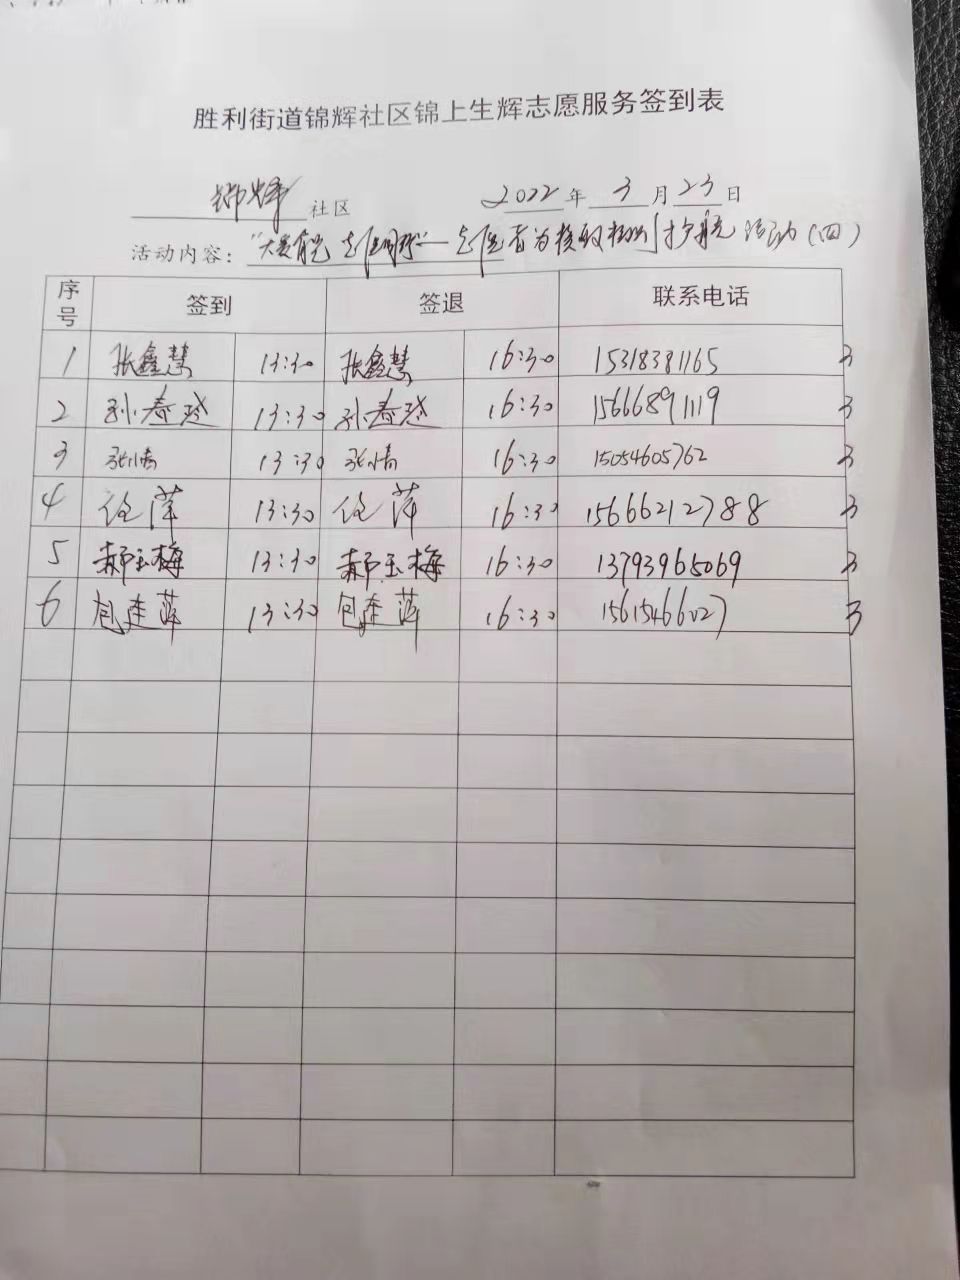 胜利街道锦辉社区锦上生辉志愿服务签到表
锦辉 社区 2022 年 3 月 23 日
活动内容: "大爱有光 志愿同行"—志愿者为核酸检测护航活动(四)
序号 签到 签退 联系电话
1 张鑫慧 13:30 张鑫慧 16:30 15318381165 3
2 孙春玲 13:30 孙春玲 16:30 15666891119 3
3 张倩 13:30 张倩 16:30 15054605762 3
4 任萍 13:30 任萍 16:30 15666212788 3
5 郝玉梅 13:30 郝玉梅 16:30 13793965069 3
6 包连萍 13:30 包连萍 16:30 15615466027 3